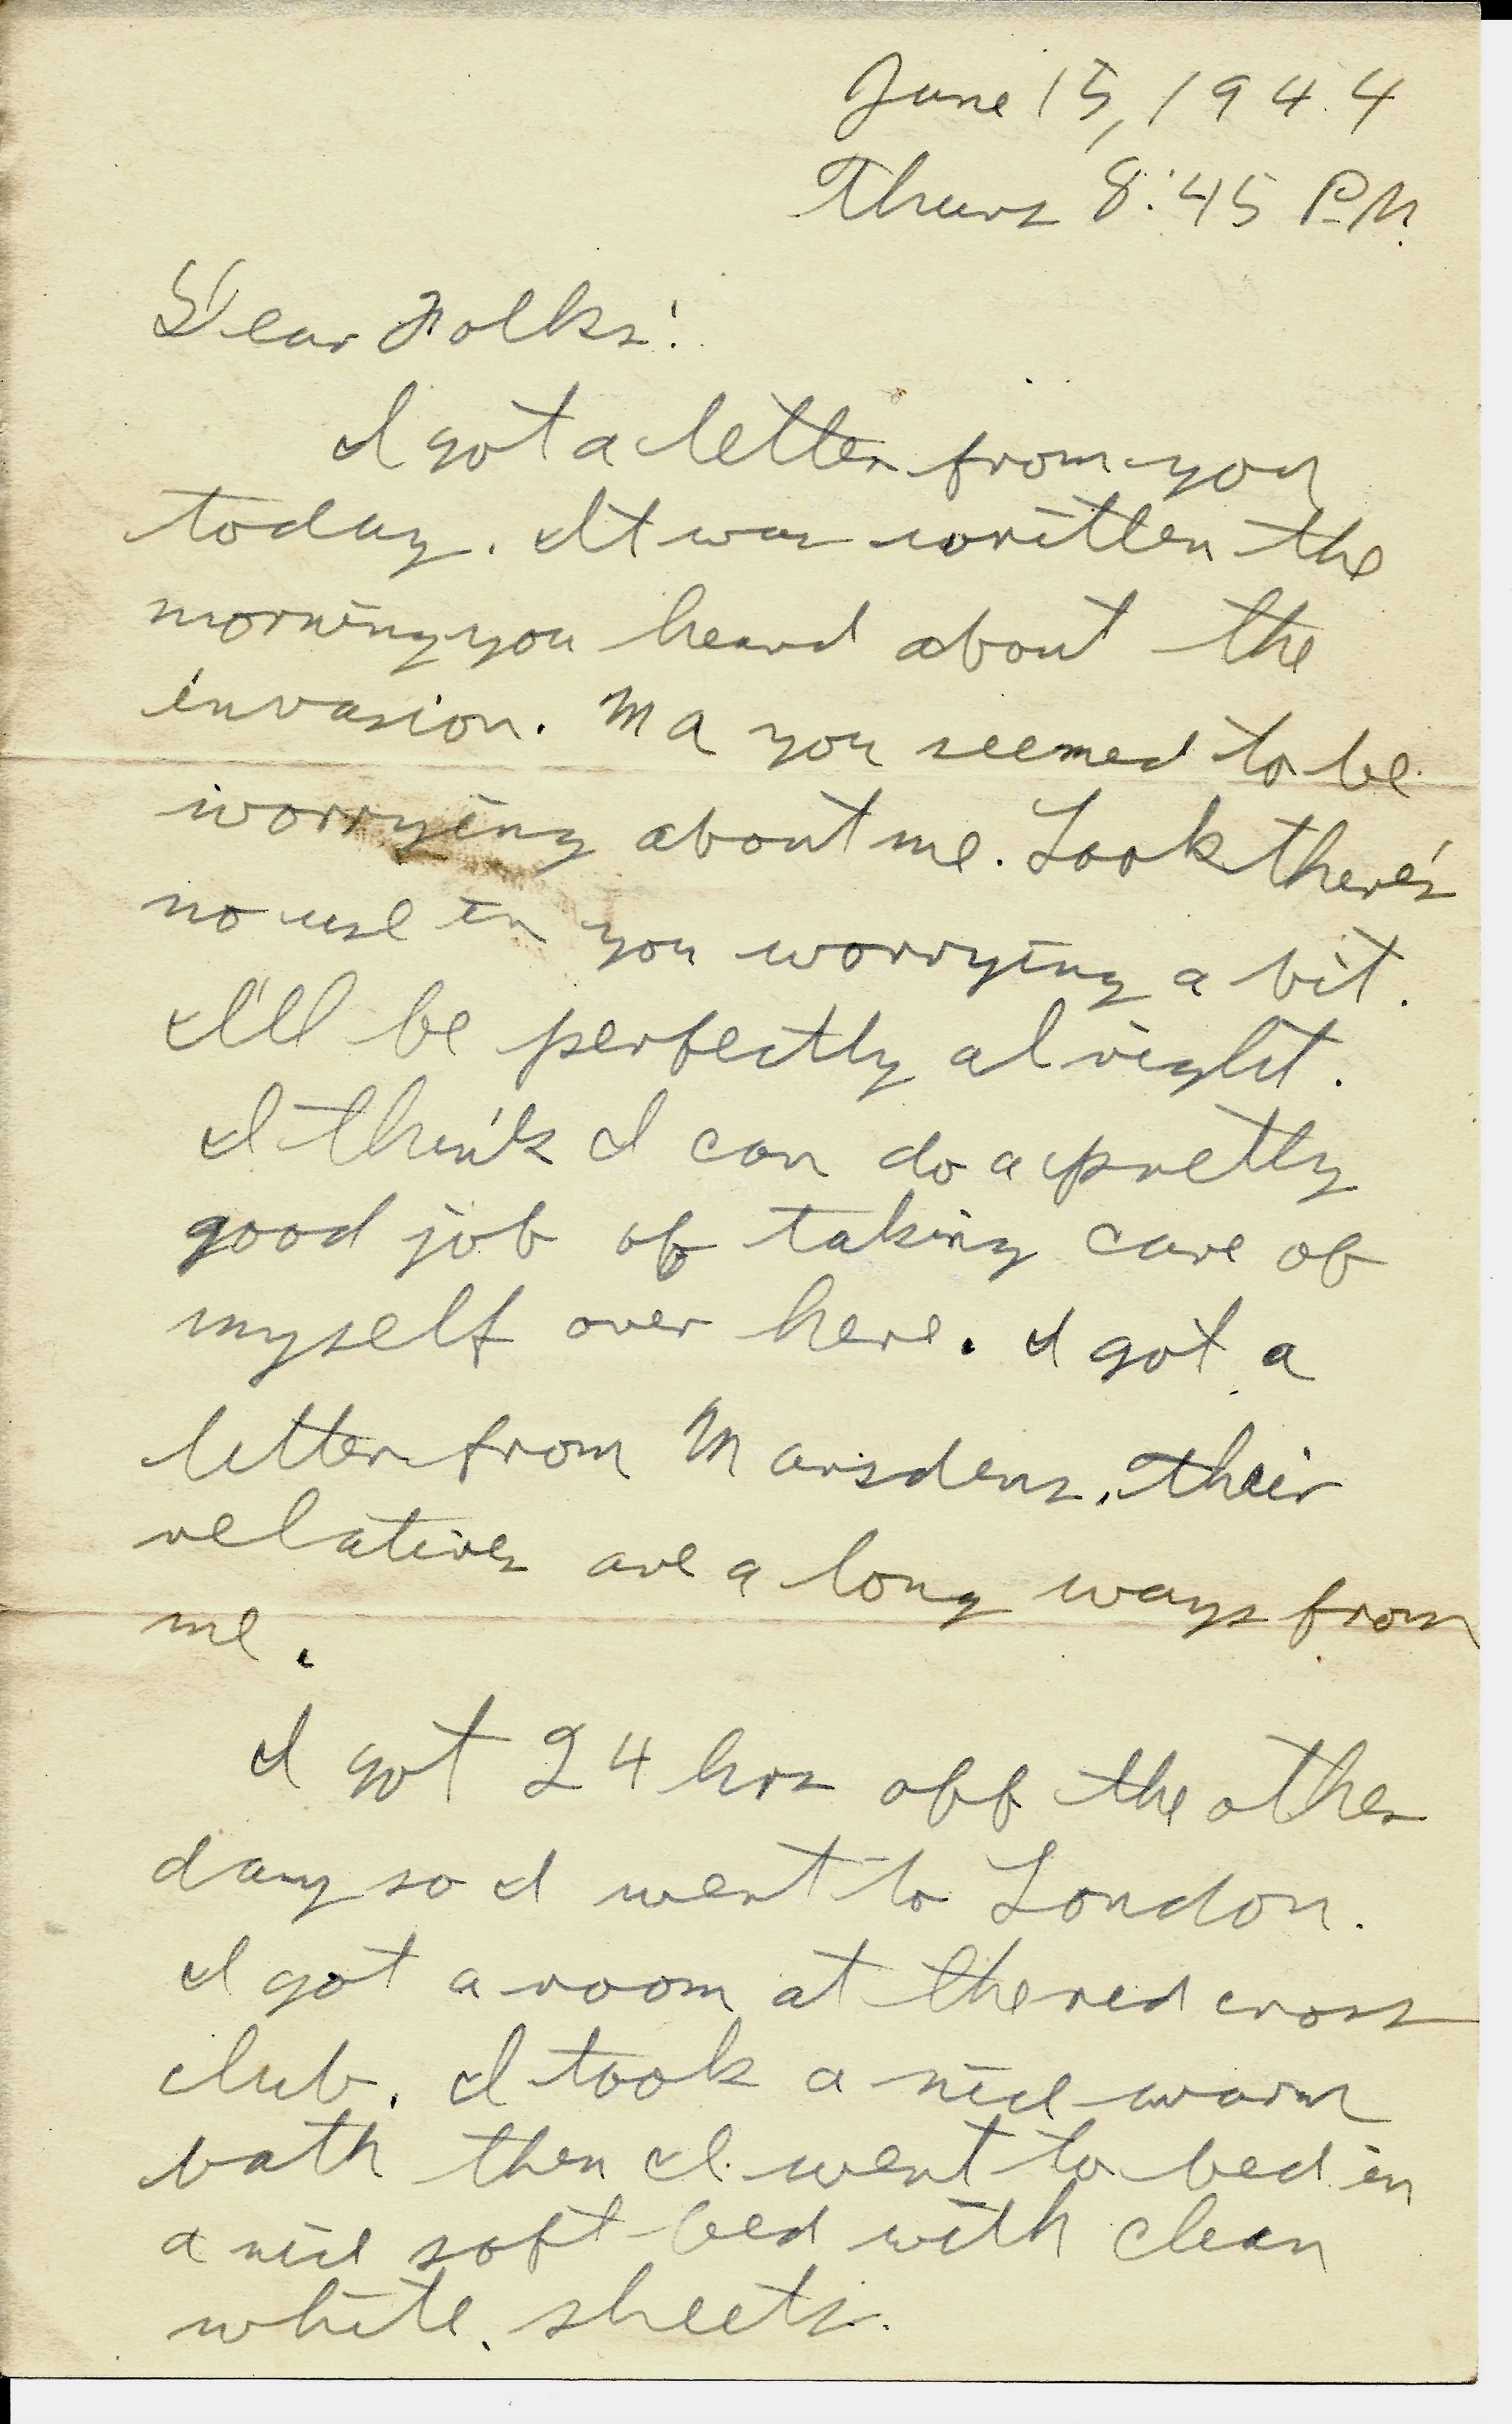 June 15, 1944
Thurs 8:45 P.M.
Dear Folks:
I got a letter from you
today. It was written the
morning you heard about the
invasion. Ma you seemed to be
worrying about me. Look there's
no use in you worrying a bit.
I'll be perfectly alright.
I think I can do a pretty
good job of taking care of
myself over here. I got a
letter from Marsdens. Their
relatives are a long ways from
me.
I got 24 hrs off the other
day so I went to London.
I got a room at the red cross
club. I took a nice warm
bath then I went to bed in
a nice soft bed with clean
white sheets.